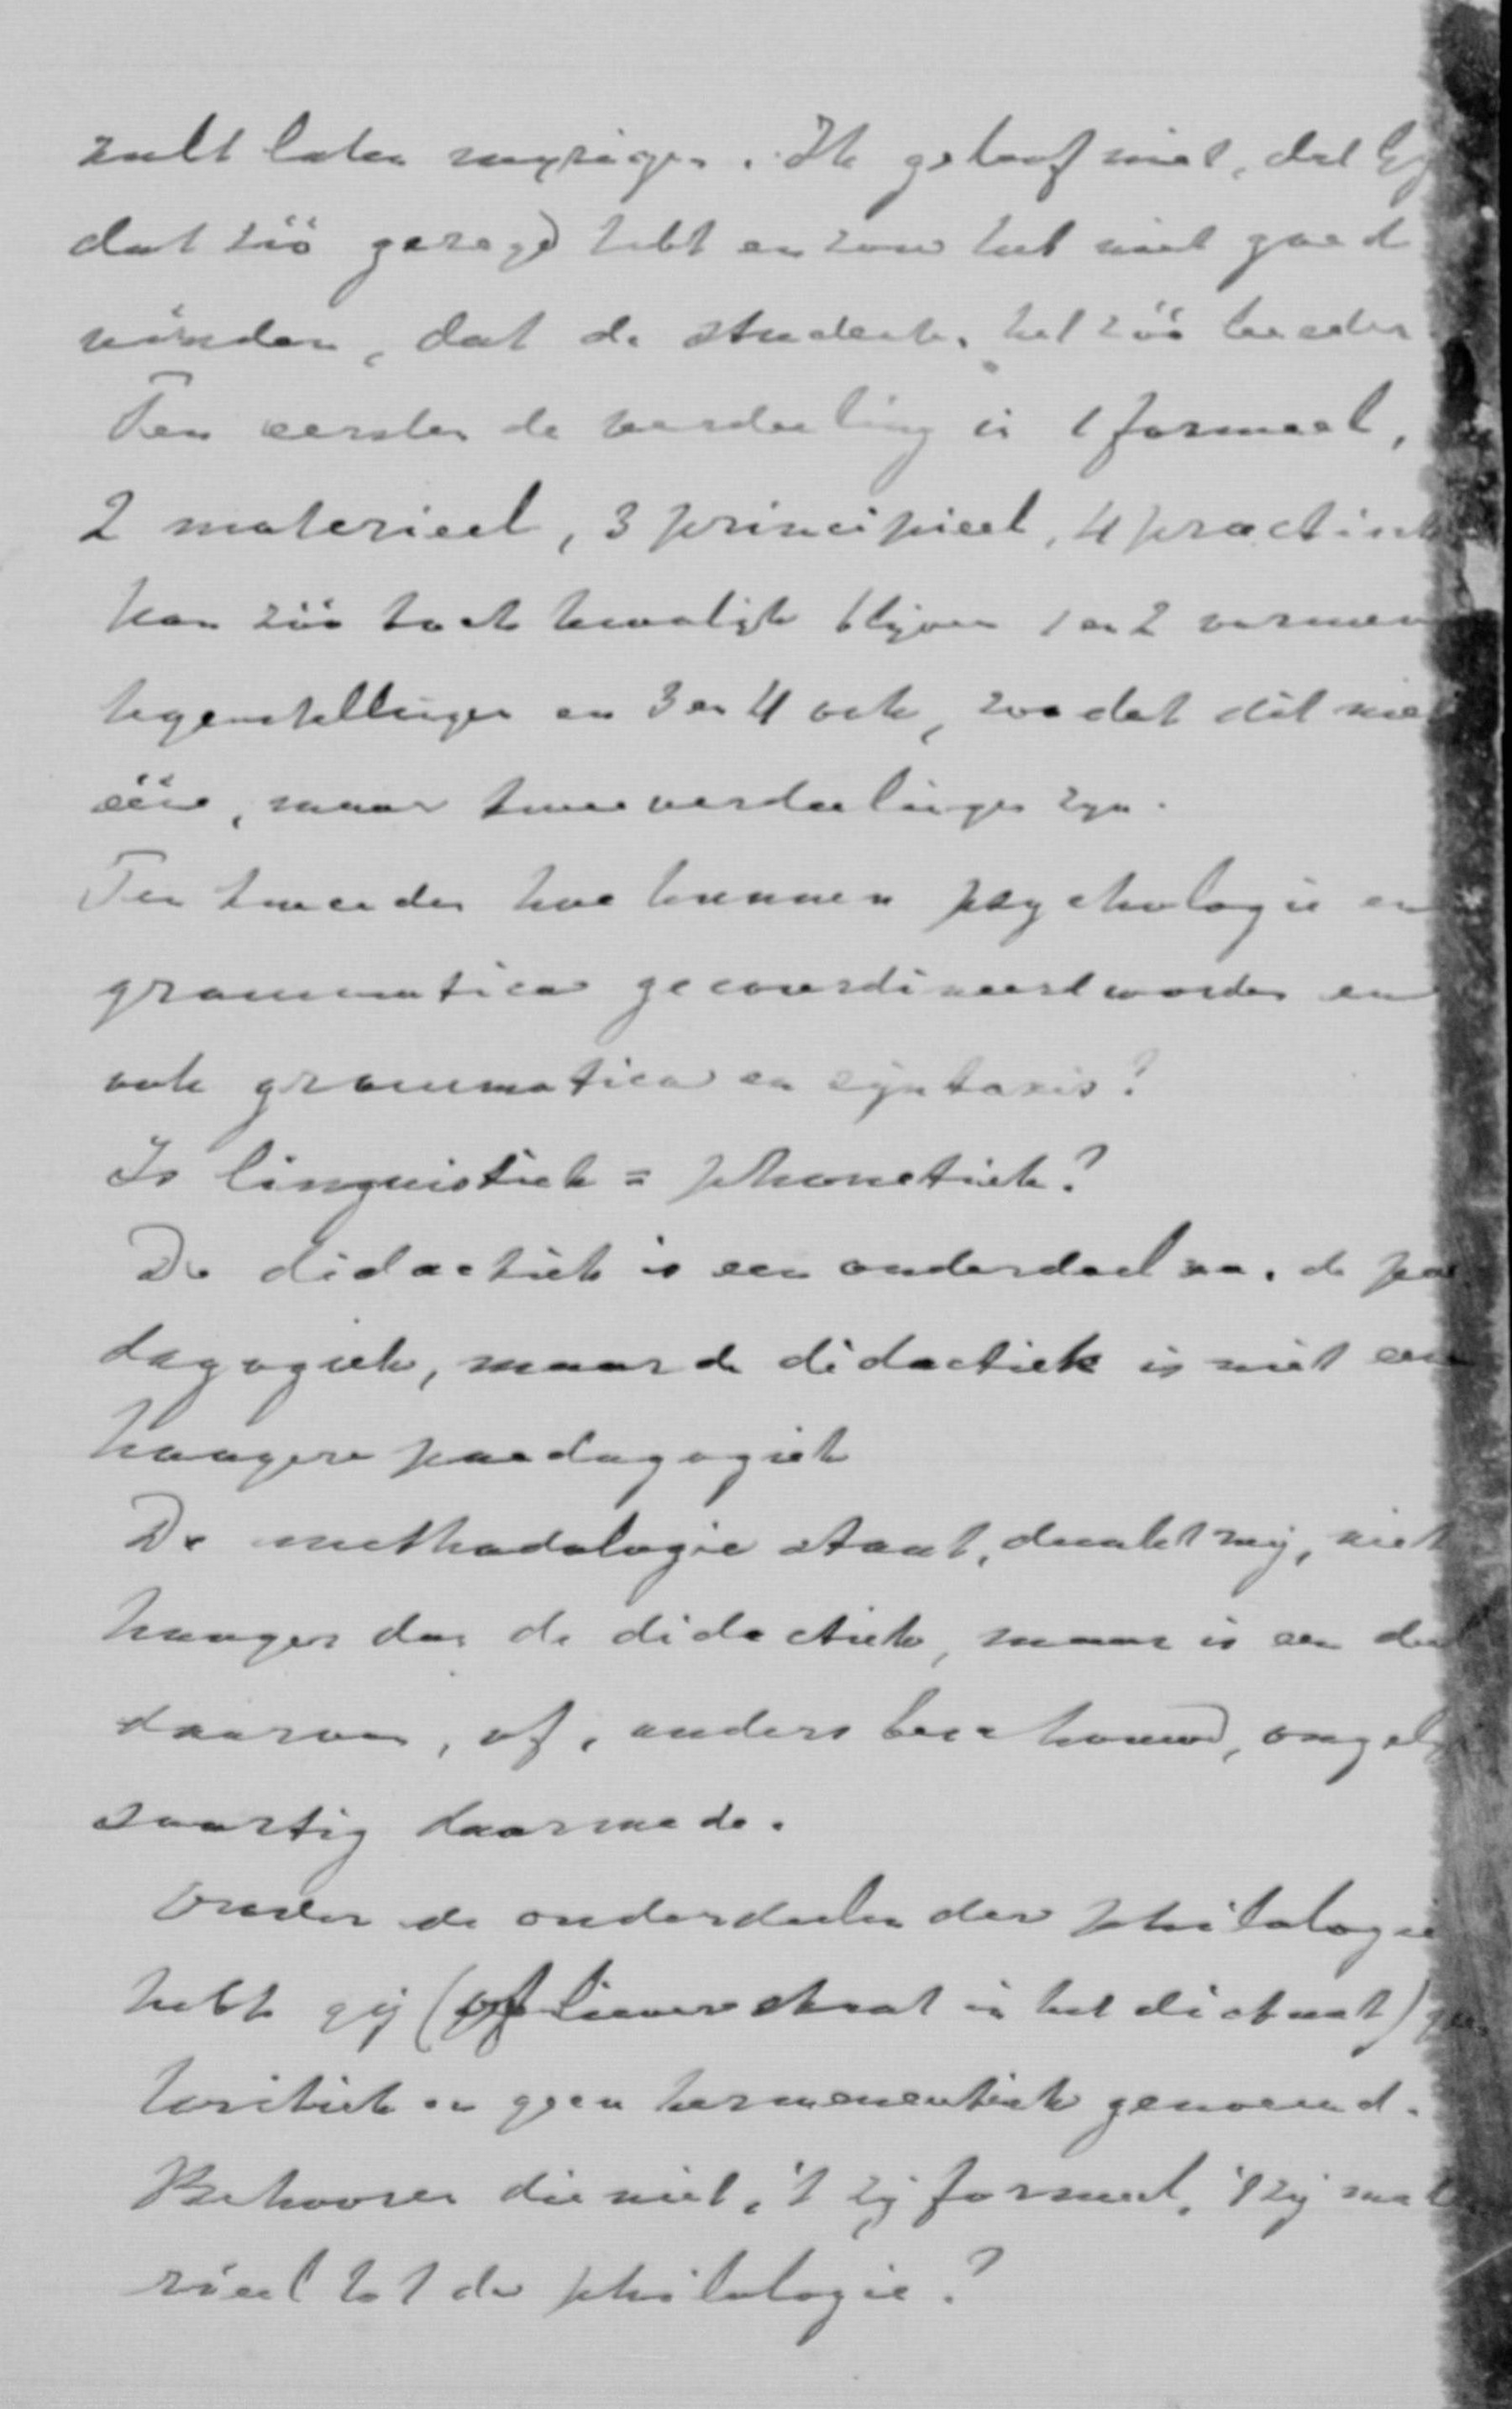 zult laten wyzigen. Ik geloof niet, dat Gy
dat zóó gezegd hebt en zou het niet goed
vinden, dat de studenten het zóó leerden
Ten eerste de verdeeling in 1 formeel,
2 materieel, 3 principieel, 4 practisch
kan zóó toch kwalijk blijven 1 en 2 vormen
tegenstellingen en 3 en 4 ook, zoodat dit niet
ééne, maar twee verdeelingen zyn.
Ten tweede hoe kunnen psychologie en
grammatica gecoordineerd worden en
ook grammatica en syntaxis?
Is linguistiek = phonetiek?
De didactiek is een onderdeel van de pae
dagogiek, maar de didactiek is niet een
hoogere paedagogiek
De methodologie staat, dunkt mij, niet
hooger dan de didactiek, maar is een deel
daarvan, of, anders beschouwd, ongelijk
soortig daarmede.
Onder de onderdeelen der philologie
hebt gij (of liever staat in het dictaat) geen
kritiek en geen hermeneutiek genoemd.
Behooren die niet, 't zij formeel, 't zij mate
rieel tot de philologie?